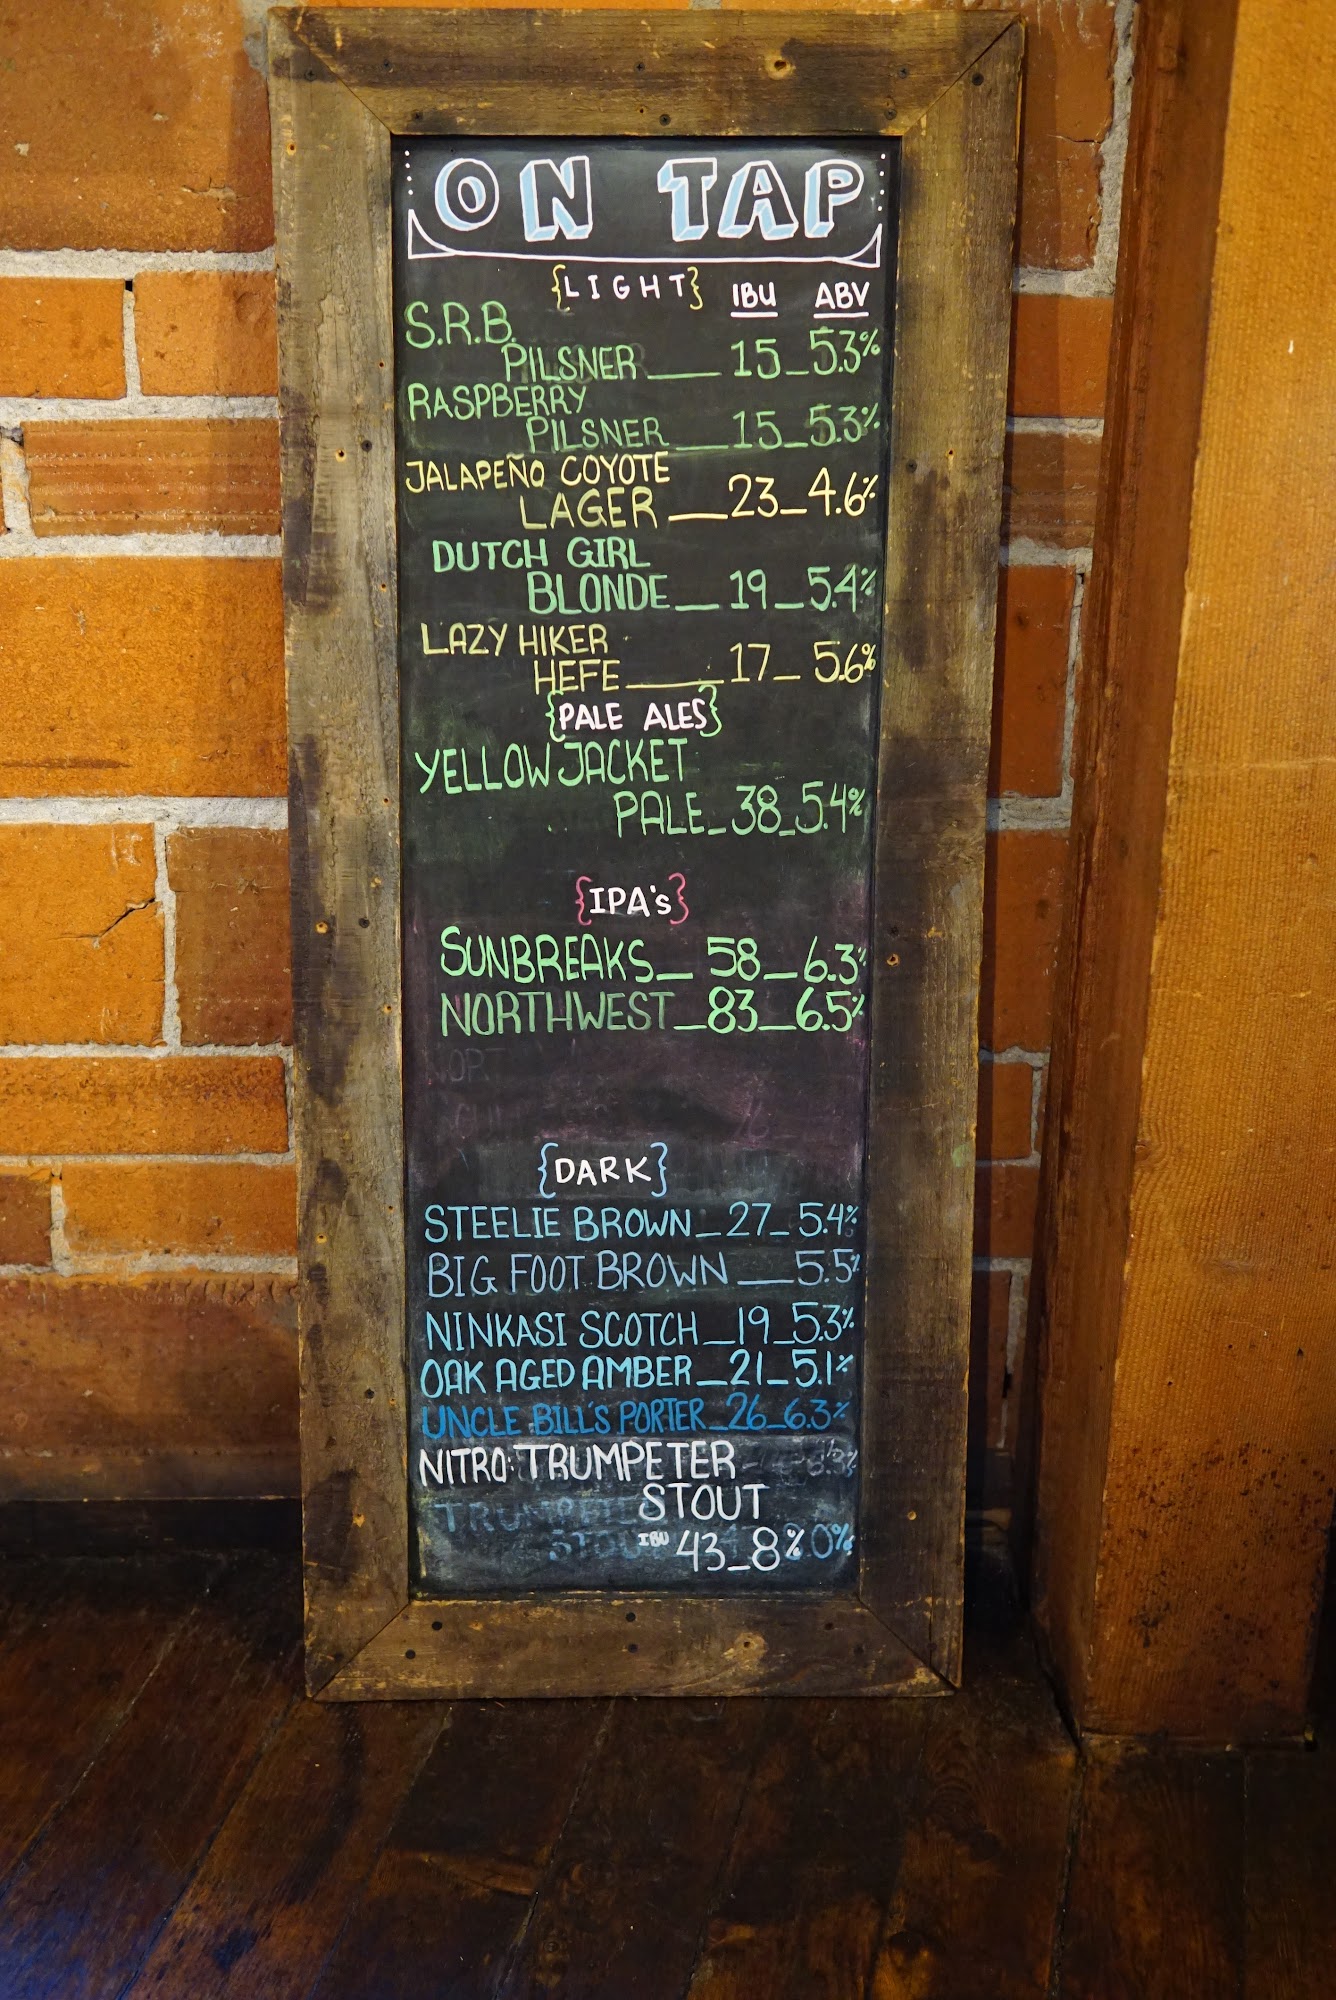 ON TAP
{LIGHT} IBU ABV
S.R.B.
PILSNER 15 5.3%
RASPBERRY
PILSNER 15 5.3%
JALAPEÑO COYOTE
LAGER 23 4.6%
DUTCH GIRL
BLONDE 19 5.4%
LAZY HIKER
HEFE 17 5.6%
{PALE ALES}
YELLOW JACKET
PALE 38 5.4%
{IPA's}
SUNBREAKS 58 6.3%
NORTHWEST 83 6.5%
{DARK}
STEELIE BROWN 27 5.4%
BIG FOOT BROWN 5.5%
NINKASI SCOTCH 19 5.3%
OAK AGED AMBER 21 5.1%
UNCLE BILL'S PORTER 26 6.3%
NITRO: TRUMPETER
STOUT
IBU 43 8%